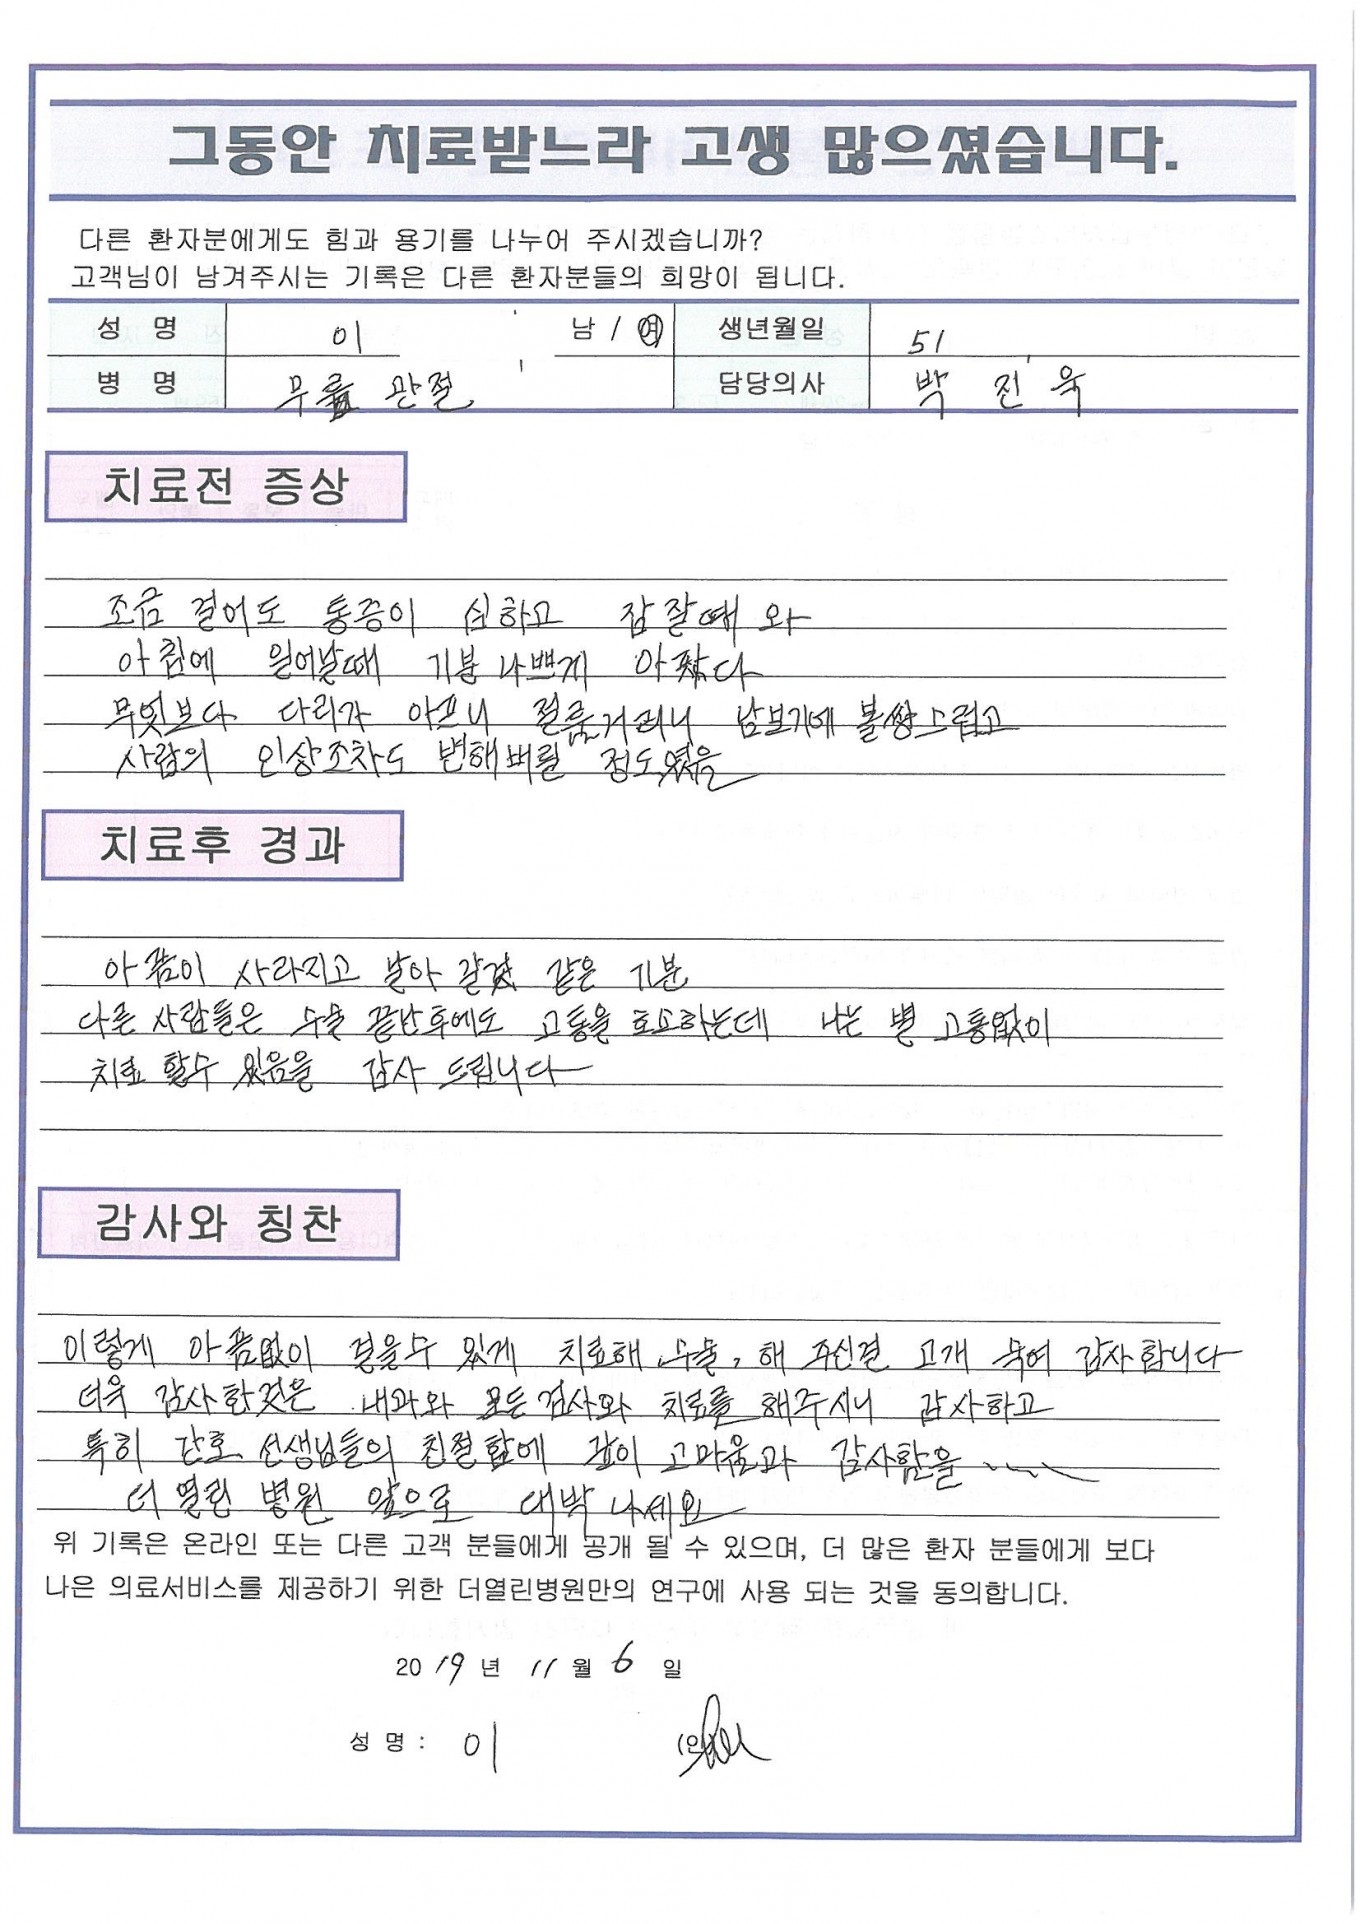 그동안 치료받느라 고생 많으셨습니다.
다른 환자분에게도 힘과 용기를 나누어 주시겠습니까?
고객님이 남겨주시는 기록은 다른 환자분들의 희망이 됩니다.
성 명 이 남 / 여 생년월일 51
병 명 무릎 관절 담당의사 박 진 욱
치료전 증상
조금 걸어도 통증이 심하고 잠잘때와
아침에 일어날때 기분 나쁘게 아팠다
무엇보다 다리가 아프니 절룩거리니 남보기에 불쌍스럽고
사람의 인상조차도 변해버릴 정도였음
치료후 경과
아픔이 사라지고 날아 갈것 같은 기분
다른 사람들은 수술 끝난후에도 고통을 호소하는데 나는 별 고통없이
치료 할수 있음을 감사 드립니다
감사와 칭찬
이렇게 아픔없이 걸을수 있게 치료해 수술, 해 주신걸 고개 숙여 감사합니다
더욱 감사한것은 내과와 모든 검사와 치료를 해주시니 감사하고
특히 간호 선생님들의 친절함에 깊이 고마움과 감사함을 .....
더 열린 병원 앞으로 대박 나세요
위 기록은 온라인 또는 다른 고객 분들에게 공개 될 수 있으며, 더 많은 환자 분들에게 보다
나은 의료서비스를 제공하기 위한 더열린병원만의 연구에 사용 되는 것을 동의합니다.
2019 년 11 월 6 일
성 명 : 이 (인)